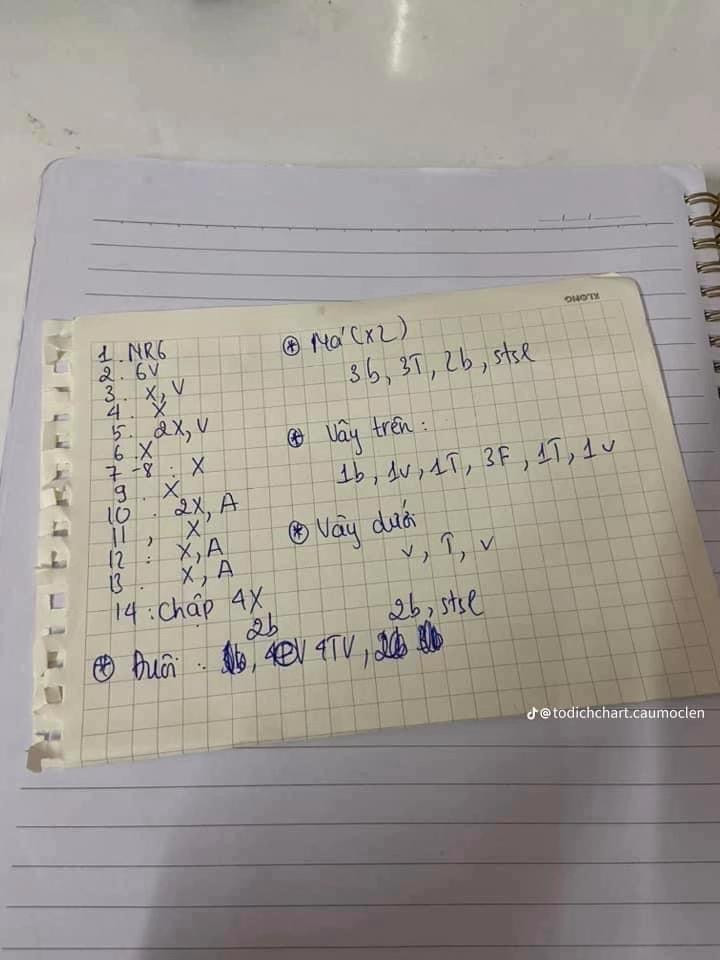 KLONG
1. MR6
2. 6V
3. X, V
4. X
5. 2X, V
6. X
7-8: X
9. X
10. 2X, A
11, X
12: X, A
13. X, A
14: Chập 4X
* Má (x2)
3b, 3T, 2b, stsl
* Vây trên:
1b, 1v, 1T, 3F, 1T, 1v
* Vây dưới
v, T, v
2b 2b, stsl
* Đuôi: 4TV,
@todichchart.caumoclen